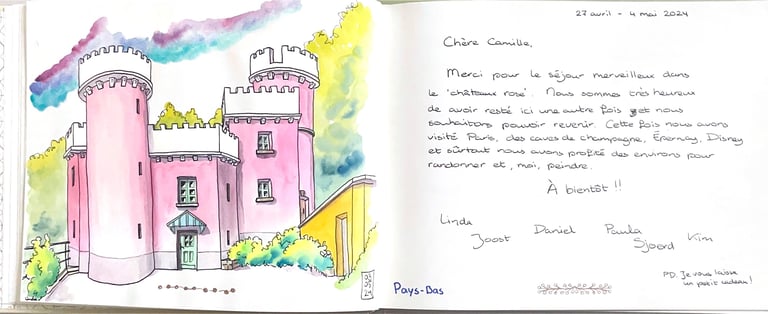 27 avril - 4 mai 2024
Chère Camille,
Merci pour le séjour merveilleux dans
le 'château rose'. Nous sommes très heureux
de avoir resté ici une autre fois et nous
souhaitons pouvoir revenir. Cette fois nous avons
visité Paris, des caves de champagne, Épernay, Disney
et sûrtout nous avons profité des environs pour
randonner et, moi, peindre.
À bientôt!!
Linda
Joost Daniel Paula Sjoerd Kim
PD. Je vous laisse
un petit cadeau!
Pays-Bas